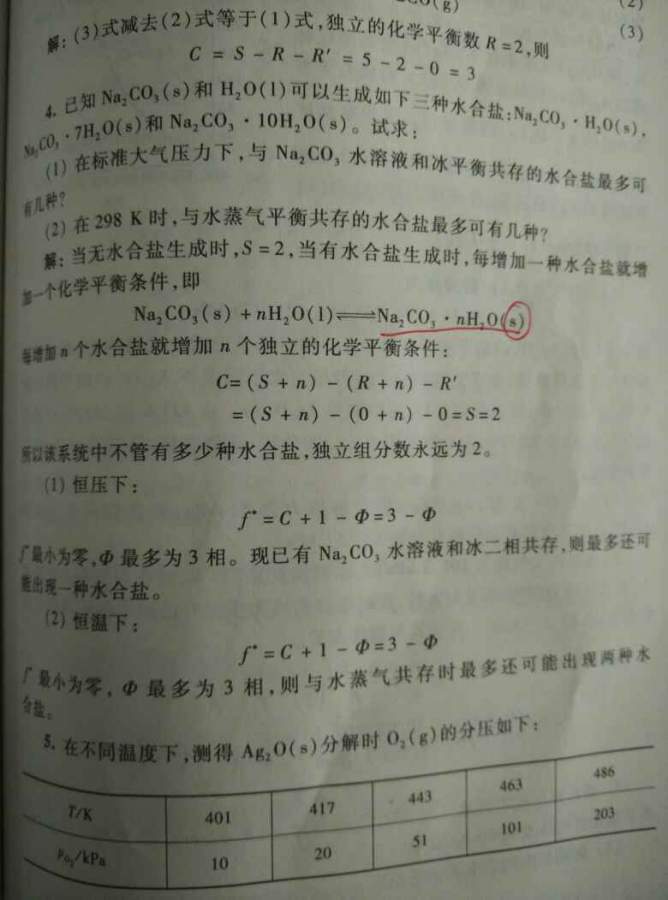 CO(g)
(2)
解:(3)式减去(2)式等于(1)式,独立的化学平衡数 R=2,则
(3)
C = S - R - R′ = 5 - 2 - 0 = 3
4. 已知 Na₂CO₃(s)和 H₂O(l)可以生成如下三种水合盐:Na₂CO₃·H₂O(s),
Na₂CO₃·7H₂O(s)和 Na₂CO₃·10H₂O(s)。试求:
(1) 在标准大气压力下,与 Na₂CO₃ 水溶液和冰平衡共存的水合盐最多可
有几种?
(2) 在 298 K 时,与水蒸气平衡共存的水合盐最多可有几种?
解:当无水合盐生成时,S=2,当有水合盐生成时,每增加一种水合盐就增
加一个化学平衡条件,即
Na₂CO₃(s) + nH₂O(l)⇌Na₂CO₃·nH₂O(s)
每增加 n 个水合盐就增加 n 个独立的化学平衡条件:
C=(S + n) - (R + n) - R′
=(S + n) - (0 + n) - 0=S=2
所以该系统中不管有多少种水合盐,独立组分数永远为2。
(1) 恒压下:
f* = C + 1 - Φ = 3 - Φ
f*最小为零,Φ 最多为 3 相。现已有 Na₂CO₃ 水溶液和冰二相共存,则最多还可
能出现一种水合盐。
(2) 恒温下:
f* = C + 1 - Φ = 3 - Φ
f*最小为零,Φ 最多为 3 相,则与水蒸气共存时最多还可能出现两种水
合盐。
5. 在不同温度下,测得 Ag₂O(s)分解时 O₂(g)的分压如下:
T/K 401 417 443 463 486
p_O₂/kPa 10 20 51 101 203